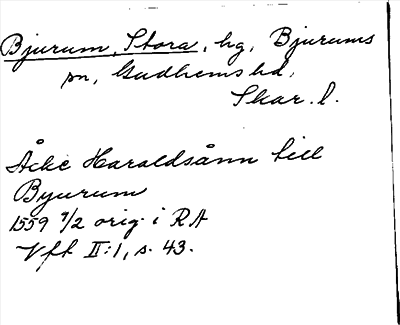 Bjurum, Stora, hg, Bjurums
sn, Gudhems hd,
Skar. l.
Åcke Haraldsånn till
Byurum
1559 7/2 orig. i RA
Vft II:1, s. 43.